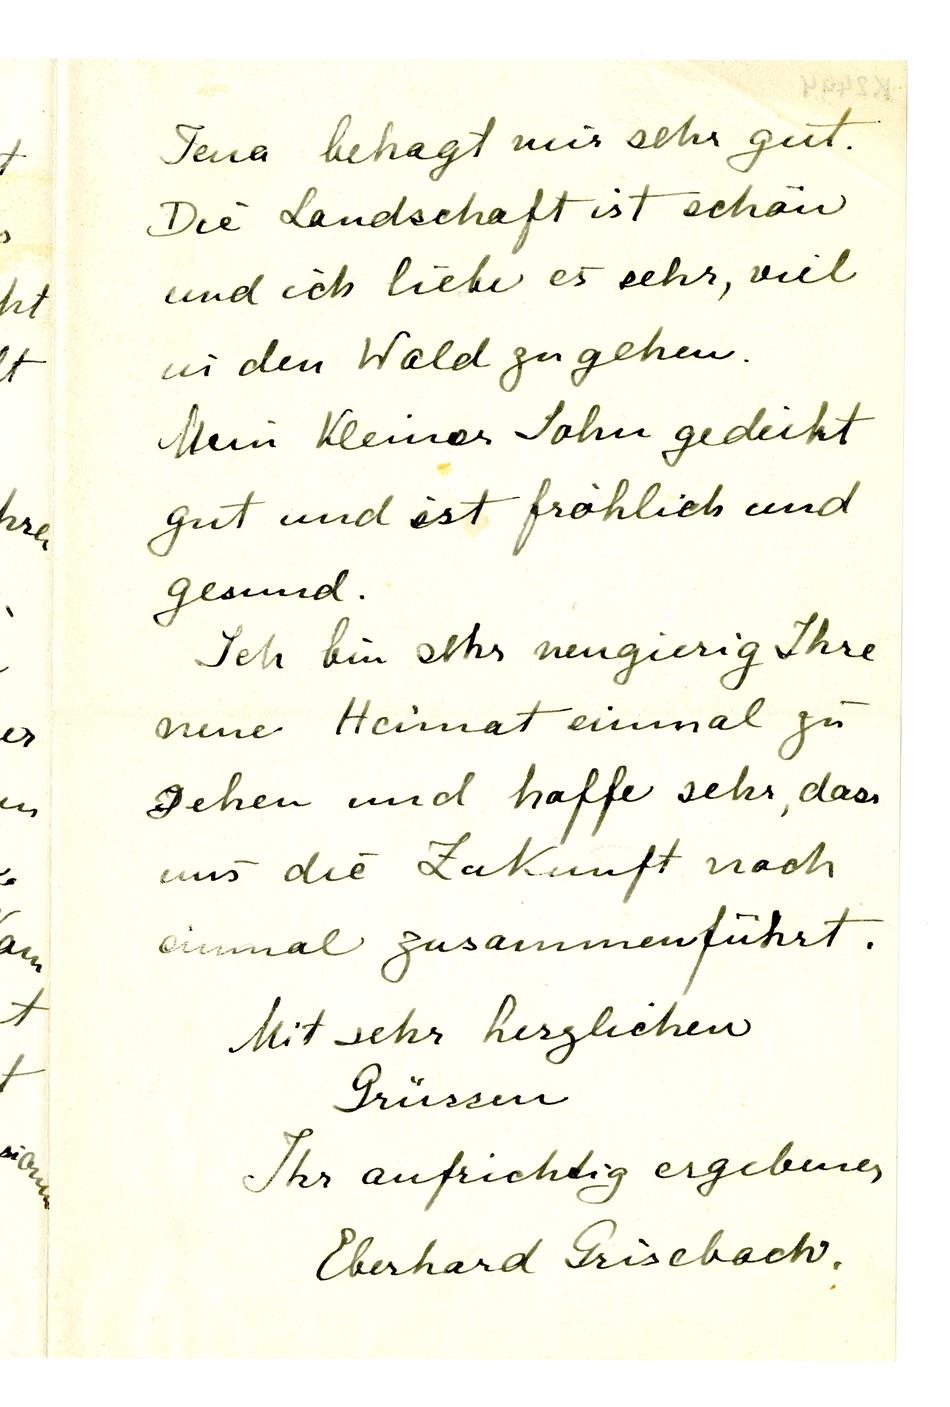 K2494
Jena behagt mir sehr gut.
Die Landschaft ist schön
und ich liebe es sehr, viel
in den Wald zu gehen.
Mein kleiner Sohn gedeiht
gut und ist fröhlich und
gesund.
Ich bin sehr neugierig Ihre
neue Heimat einmal zu
sehen und hoffe sehr, dass
uns die Zukunft noch
einmal zusammenführt.
Mit sehr herzlichen
Grüssen
Ihr aufrichtig ergebener
Eberhard Grisebach.